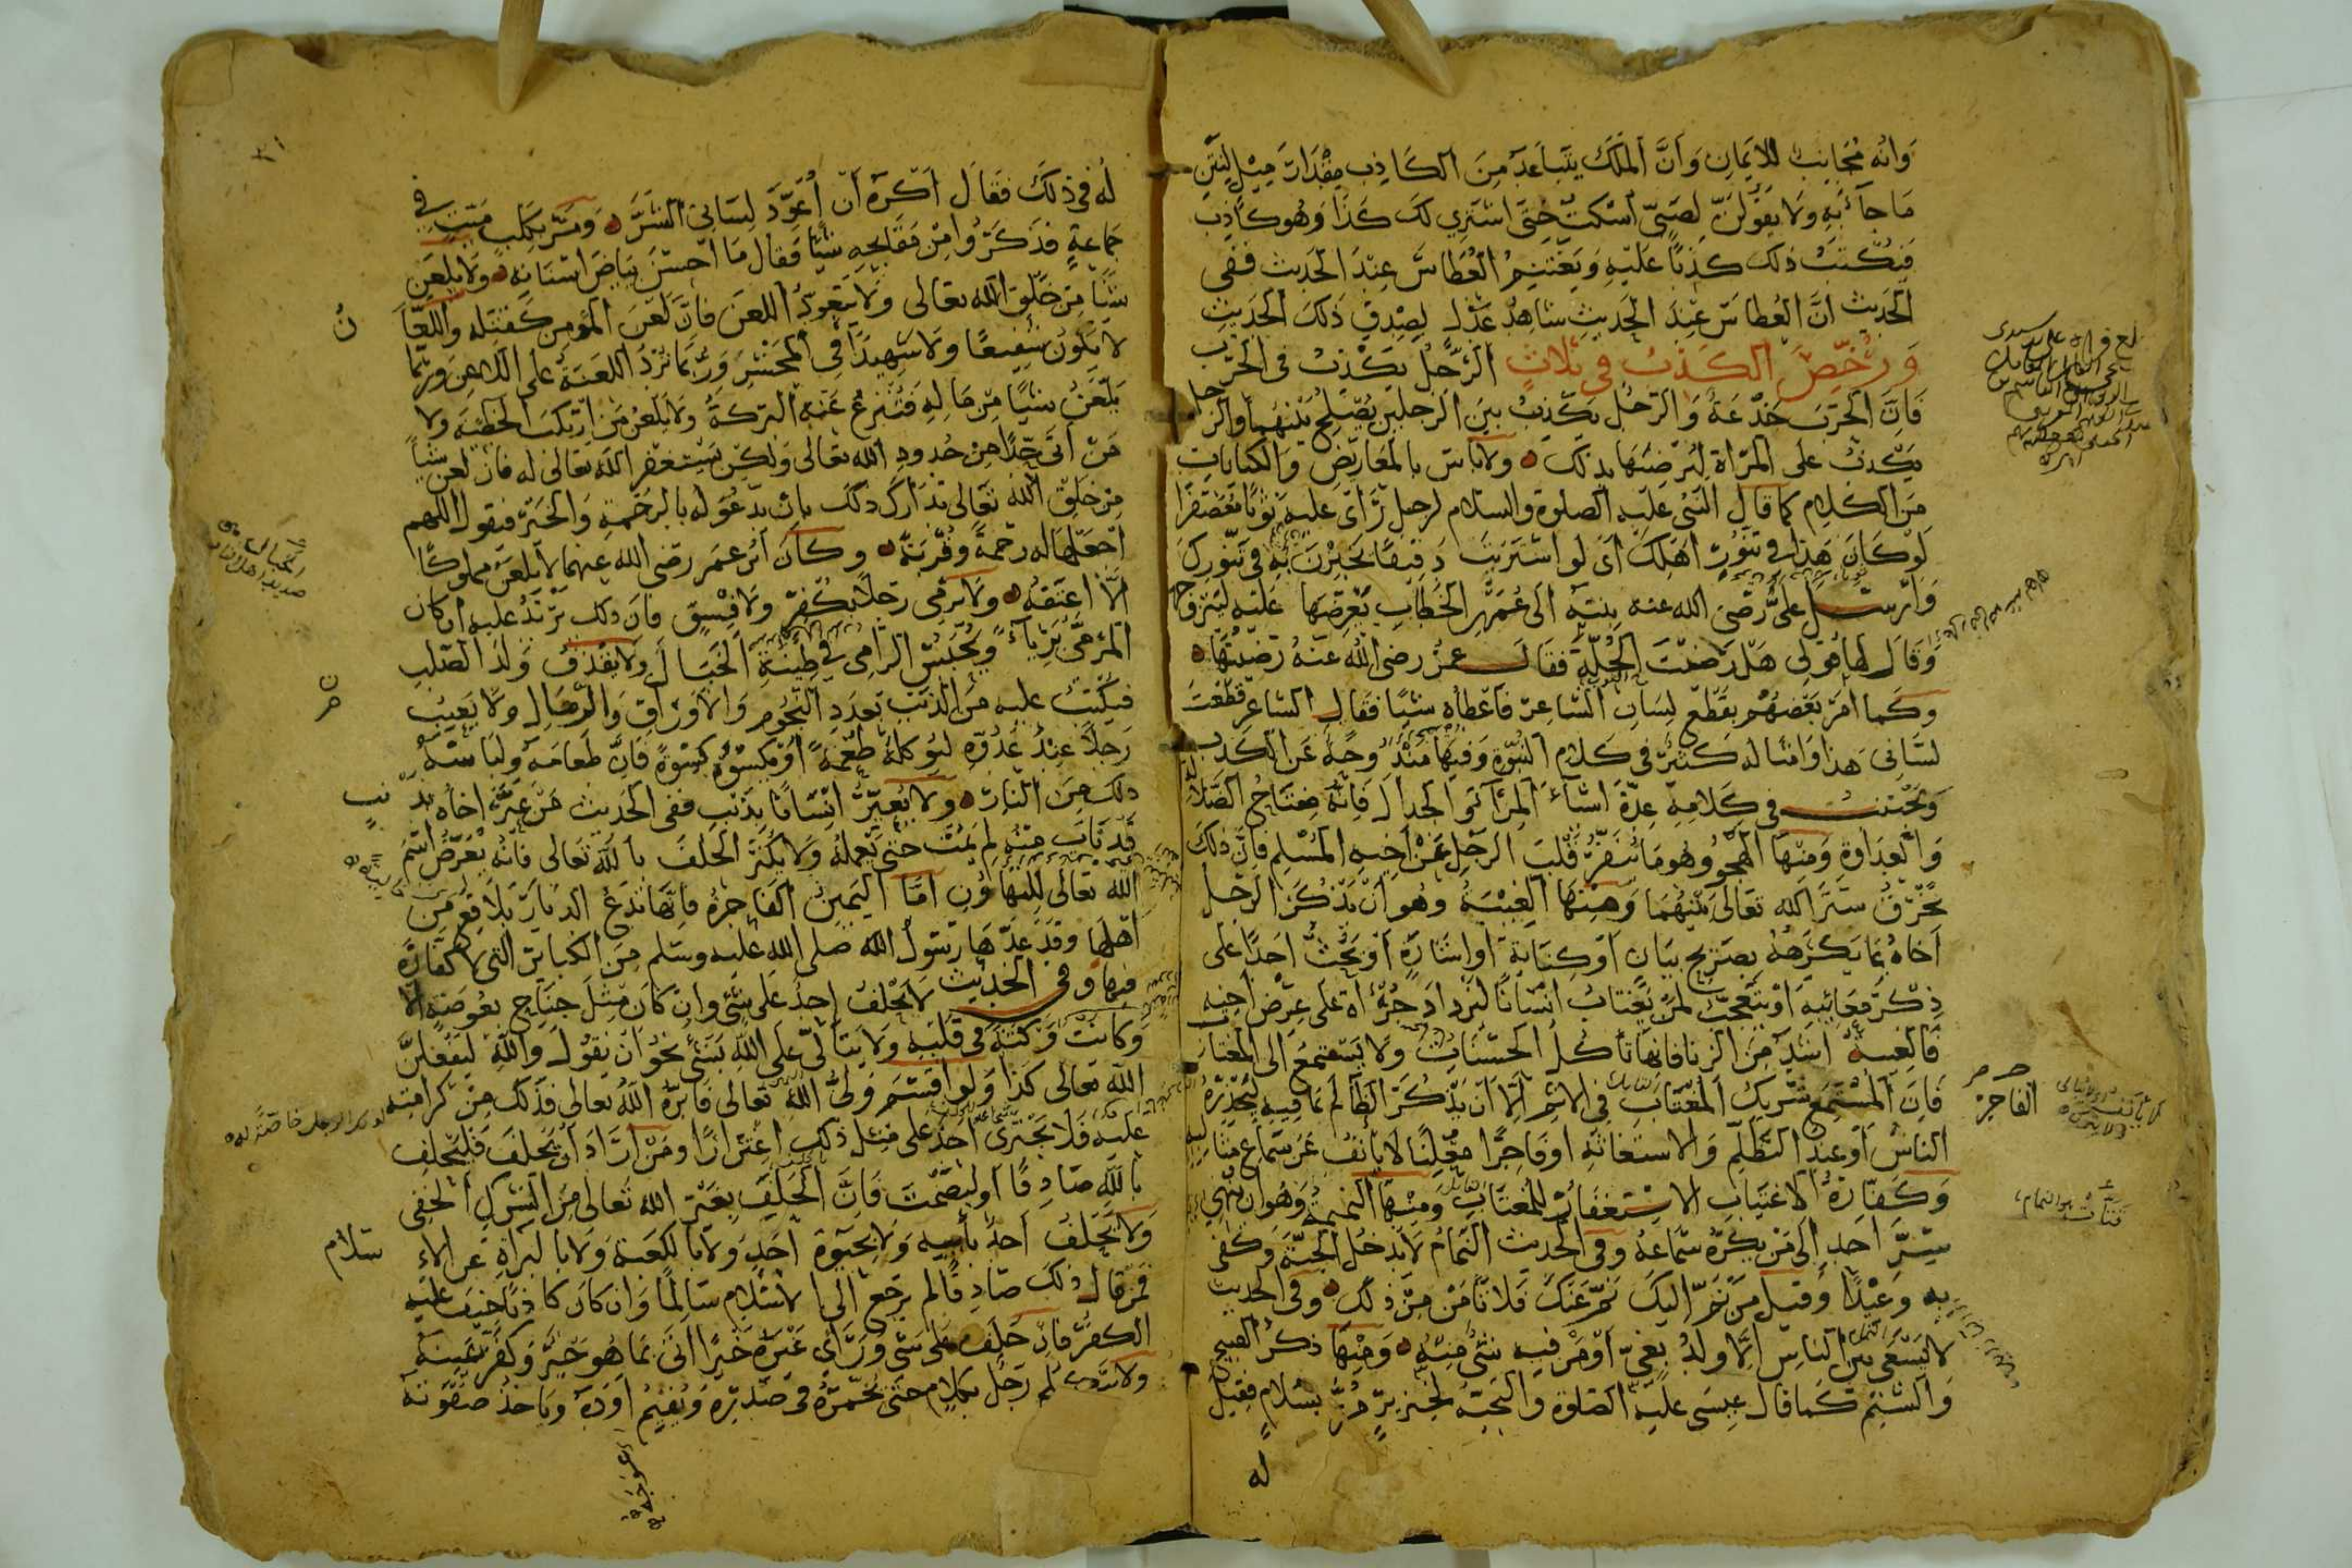 وانه مجانب للايمان وان الملك يتباعد من الكاذب مقدار ميل لنتن
ما جآء به ولا يقولن لصبي اسكت حتى اشتري لك كذا وهو كاذب
فتكتب ذلك كذبا عليه ويغتنم العطاس عند الحديث ففي
الحديث ان العطاس عند الحديث شاهد عدل لصدق ذلك الحديث
ورخص الكذب في ثلاث الرجل يكذب في الحرب
فان الحرب خدعة والرجل يكذب بين الرجلين يصلح بينهما والرجل
يكذب على المراة ليرضيها بذلك ولا باس بالمعاريض والكنايات
من الكلام كما قال النبي عليه الصلوة والسلام لرجل رأى عليه ثوبا معصفرا
لو كان هذا في تنور اهلك اى لو اشتريت دقيقا تخبزن به في تنورك
وارسل علي رضى الله عنه بنته الى عمر بن الخطاب يعرضها عليه ليتزوجها
وقال لها قولى هل رضيت الحلة فقال عمر رضى الله عنه رضيتها
وكما امر بعضهم بقطع لسان الشاعر فاعطاه شيئا فقال الشاعر قطعت
لساني هذا وامثاله كثير في كلام النبوة وفيها مندوحة عن الكذب
ويجتنب في كلامه عدة اشيآء المرآء والجدال فانه مفتاح الضلالة
والعداوة ومنها الهجو وهو ما ينفر قلب الرجل عن اخيه المسلم فان ذلك
يخرق ستر الله تعالى بينهما ومنها الغيبة وهو ان يذكر الرجل
اخاه بما يكرهه بصريح بيان او كناية او اشارة او يحث احدا على
ذكر معائبه او يتعجب لمن يغتاب انسانا ليزداد جرأة على عرض اخيه
فالغيبة اشد من الزنا فانها تأكل الحسنات ولا يستمع الى المغتاب
فان المستمع شريك المغتاب في الاثم الا ان يذكر الظالم بما فيه ليحذره
الناس او عند التظلم والاستغاثة او فاجرا معلنا لا يأنف عن سماع مثالبه
وكفارة الاغتياب الاستغفار للمغتاب ومنها النميمة وهو ان ينهي
سر احد الى من يكره سماعه وفي الحديث النمام لا يدخل الجنة وكفى
به وعيدا وقيل من نم اليك نم عنك فلا تأمن من ذلك وفي الحديث
لا يسعى بين الناس الا ولد بغي او من فيه شئ منه ومنها ذكر القبيح
والشتم كما قال عيسى عليه الصلوة والتحية لخنزير مر بسلام فقيل
له
الفاجر
له في ذلك فقال اكره ان أعود لساني الشر ومر بكلب ميت في
جماعة فذكروا من مقابحه شيئا فقال ما احسن بياض اسنانه ولا يلعن
شيئا من خلق الله تعالى ولا يتعود اللعن فان لعن المؤمن كقتله واللعا
ن
لا يكون شفيعا ولا شهيدا في المحشر وربما ترد اللعنة على اللاعن وربما
يلعن شيئا من ماله فتنزع عنه البركة ولا يلعن من ارتكب الخطيئة ولا
من اتى حدا من حدود الله تعالى ولكن يستغفر الله تعالى له فان لعن شيئا
من خلق الله تعالى تدارك ذلك بان يدعو له بالرحمة والخير فيقول اللهم
اجعلها له رحمة وقربة وكان ابن عمر رضى الله عنهما لا يلعن مملوكا
الا اعتقه ولا يرمي رجلا بكفر ولا فسق فان ذلك يرتد عليه ان كان
المرمي بريأ ويحبس الرامي في طينة الخبال ولا يقذف ولد الصلب
فيكتب عليه من الذنب بعدد النجوم والاوراق والرمال ولا يعيب
رجلا عند عدوه ليؤكله طعمة او يكسوه كسوة فان طعامه ولباسه
ذلك من النار ولا يعير انسانا بذنب ففي الحديث من عير اخاه بذ
نب
قد تاب منه لم يمت حتى يعمله ولا يكثر الحلف بالله تعالى فانه يعرض اسم
الله تعالى للتهاون اما اليمين الفاجرة فانها تدع الديار بلاقع من
اهلها وقد عدها رسول الله صلى الله عليه وسلم من الكبائر التي لا كفارة
فيها وفي الحديث لا يحلف احد على شئ وان كان مثل جناح بعوضة الا
وكانت وكتة في قلبه ولا يتألى على الله بشئ نحو ان يقول والله ليفعلن
الله تعالى كذا ولو اقسم ولي الله تعالى فابره الله تعالى فذلك من كرامته
عليه فلا يجترئ احد على مثل ذلك اغترارا ومن اراد ان يحلف فليحلف
بالله صادقا او ليصمت فان الحلف بغير الله تعالى من الشرك الخفي
ولا يحلف احد بأبيه ولا بحيوة احد ولا بالكعبة ولا بالبراة عن الاء
سلام
فمن قال ذلك صادقا لم يرجع الى الاسلام سالما وان كان كاذبا خيف عليه
الكفر فان حلف على شئ ورأى غيره خيرا اتى بما هو خير وكفر يمينه
ولا يتكلم رجل بكلام حتى يخمره في صدره ويقيم اوده ويأخذ صفوته